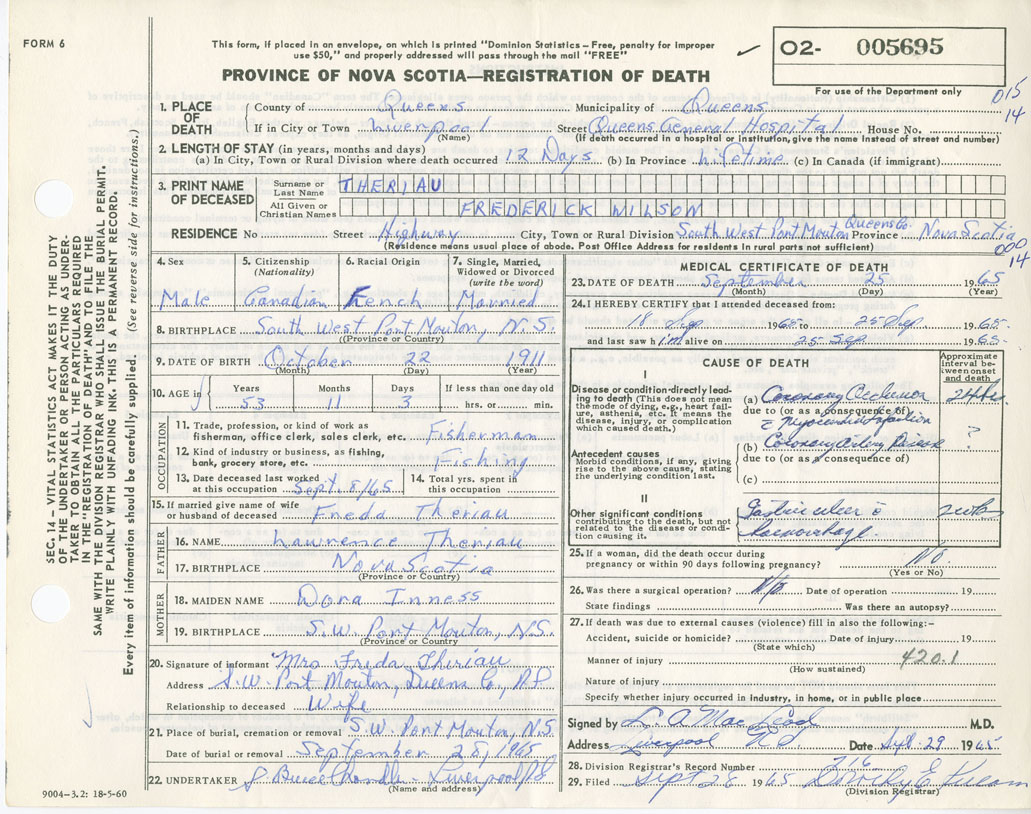 FORM 6
This form, if placed in an envelope, on which is printed "Dominion Statistics – Free, penalty for improper
use $50," and properly addressed will pass through the mail "FREE"
✓ 02- 005695
PROVINCE OF NOVA SCOTIA—REGISTRATION OF DEATH
For use of the Department only
015
14
1. PLACE OF DEATH
County of Queens Municipality of Queens
If in City or Town Liverpool Street Queens General Hospital House No.
(Name) (If death occurred in a hospital or institution, give name instead of street and number)
2. LENGTH OF STAY (in years, months and days)
(a) In City, Town or Rural Division where death occurred 12 Days (b) In Province lifetime (c) In Canada (if immigrant)
3. PRINT NAME OF DECEASED
Surname or Last Name THERIAU
All Given or Christian Names FREDERICK WILSON
RESIDENCE No Street Highway City, Town or Rural Division South West Port Mouton Queens Co. Province Nova Scotia
(Residence means usual place of abode. Post Office Address for residents in rural parts not sufficient)
000
14
4. Sex
Male
5. Citizenship
(Nationality)
Canadian
6. Racial Origin
French
7. Single, Married,
Widowed or Divorced
(write the word)
Married
8. BIRTHPLACE South West Port Mouton, N.S.
(Province or Country)
9. DATE OF BIRTH October 22 1911
(Month) (Day) (Year)
10. AGE in
Years Months Days If less than one day old
53 11 3 hrs. or min.
OCCUPATION
11. Trade, profession, or kind of work as
fisherman, office clerk, sales clerk, etc. Fisherman
12. Kind of industry or business, as fishing,
bank, grocery store, etc. Fishing
13. Date deceased last worked
at this occupation Sept. 8/65
14. Total yrs. spent in
this occupation
15. If married give name of wife
or husband of deceased Freda Theriau
FATHER
16. NAME Lawrence Theriau
17. BIRTHPLACE Nova Scotia
(Province or Country)
MOTHER
18. MAIDEN NAME Dora Inness
19. BIRTHPLACE S.W. Port Mouton, N.S.
(Province or Country)
20. Signature of informant Mrs Frida Theriau
Address S.W. Port Mouton, Queens Co,
Relationship to deceased Wife
21. Place of burial, cremation or removal S.W. Port Mouton, N.S.
Date of burial or removal September 28, 1965
22. UNDERTAKER Chandler - Liverpool, NS
(Name and address)
9004–3.2: 18-5-60
MEDICAL CERTIFICATE OF DEATH
23. DATE OF DEATH September 25 1965
(Month) (Day) (Year)
24. I HEREBY CERTIFY that I attended deceased from:
18 Sep 1965 to 25 Sep 1965
and last saw him alive on 25 Sep 1965
CAUSE OF DEATH
Approximate
interval be-
tween onset
and death
I
Disease or condition directly lead-
ing to death (This does not mean
the mode of dying, e.g., heart fail-
ure, asthenia, etc. It means the
disease, injury, or complication
which caused death.)
(a) Coronary Occlusion 24 hrs
due to (or as a consequence of)
c̄ Myocardial Infarction
(b) Coronary Artery Disease ?
due to (or as a consequence of)
(c)
Antecedent causes
Morbid conditions, if any, giving
rise to the above cause, stating
the underlying condition last.
II
Other significant conditions
contributing to the death, but not
related to the disease or condi-
tion causing it.
Gastric ulcer c̄ 2 wks
haemorrhage.
25. If a woman, did the death occur during
pregnancy or within 90 days following pregnancy? No.
(Yes or No)
26. Was there a surgical operation? No Date of operation 19
State findings Was there an autopsy?
27. If death was due to external causes (violence) fill in also the following:–
Accident, suicide or homicide? Date of injury 19
(State which)
Manner of injury 420.1
(How sustained)
Nature of injury
Specify whether injury occurred in industry, in home, or in public place
Signed by L. A MacLeod M.D.
Address Liverpool N.S. Date Sept. 29 1965
28. Division Registrar's Record Number 716
29. Filed Sept 28 1965 Dorothy E.
(Division Registrar)
SEC. 14 – VITAL STATISTICS ACT MAKES IT THE DUTY
OF THE UNDERTAKER OR PERSON ACTING AS UNDER-
TAKER TO OBTAIN ALL THE PARTICULARS REQUIRED
IN THE "REGISTRATION OF DEATH" AND TO FILE THE
SAME WITH THE DIVISION REGISTRAR WHO SHALL ISSUE THE BURIAL PERMIT.
WRITE PLAINLY WITH UNFADING INK. THIS IS A PERMANENT RECORD.
Every item of information should be carefully supplied. (See reverse side for instructions.)